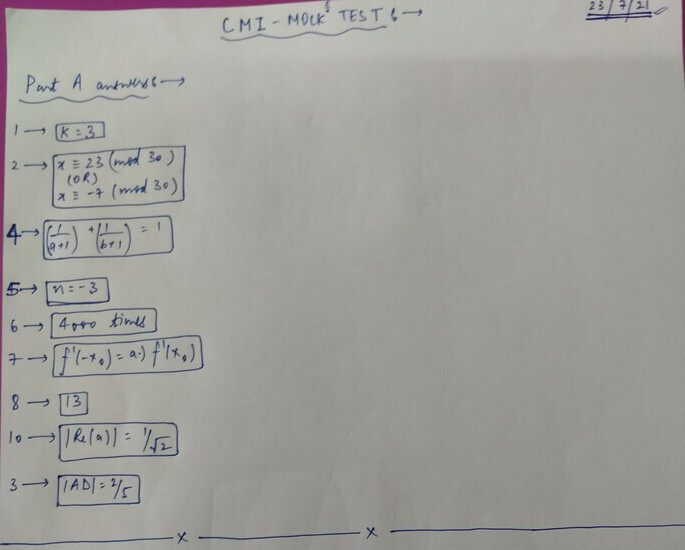 CMI - MOCK TEST :→
23/7/21
Part A answers :→
1 → K = 3
2 → x ≡ 23 (mod 30)
(OR)
x ≡ -7 (mod 30)
4 → (1/a+1) + (1/b+1) = 1
5 → n = -3
6 → 4000 times
7 → f'(-x₀) = a.) f'(x₀)
8 → 13
10 → |Re(a)| = 1/√2
3 → |AD| = 2/5
x x